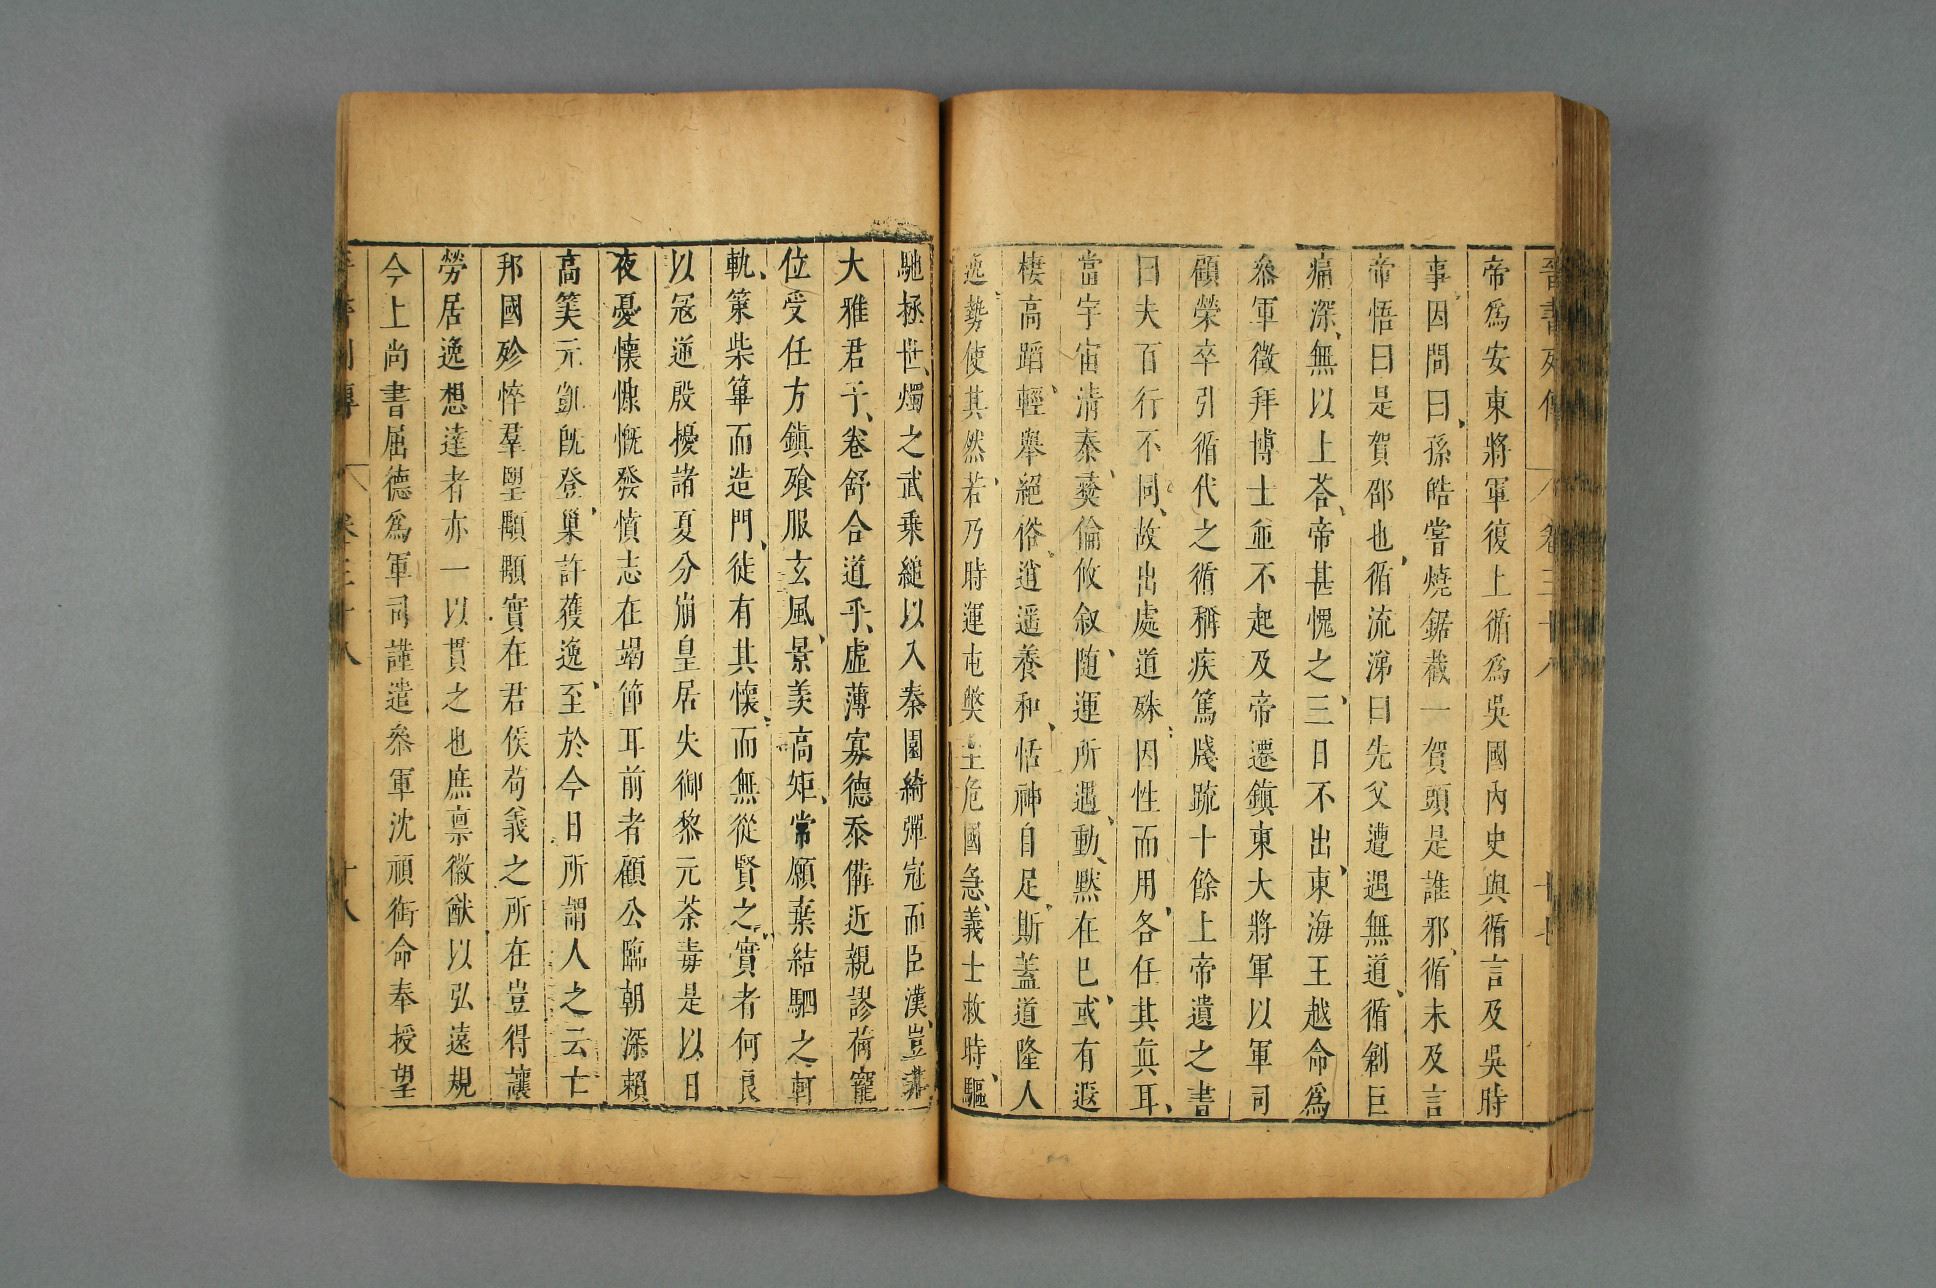 晉書列傳 卷三十八 十七
帝爲安東將軍復上循爲吳國內史與循言及吳時
事因問曰孫皓嘗燒鋸截一賀頭是誰邪循未及言
帝悟曰是賀邵也循流涕曰先父遭遇無道循創巨
痛深無以上荅帝甚愧之三日不出東海王越命爲
叅軍徵拜博士並不起及帝遷鎮東大將軍以軍司
顧榮卒引循代之循稱疾篤牋疏十餘上帝遺之書
曰夫百行不同故出處道殊因性而用各任其眞耳
當宇宙清泰彝倫攸叙随運所遇動默在己或有遐
棲高蹈輕舉絕俗逍遥養和恬神自足斯蓋道隆人
逸勢使其然若乃時運屯獘主危國急義士救時驅
馳拯世燭之武乗縋以入秦園綺彈冠而臣漢豈非
大雅君子卷舒合道乎虛薄寡德忝僃近親謬荷寵
位受任方鎮飱服玄風景羡高矩常願棄結駟之軒
軌策柴篳而造門徒有其懷而無從賢之實者何良
以冦逆殷擾諸夏分崩皇居失御黎元荼毒是以日
夜憂懷慷慨發憤志在竭節耳前者顧公臨朝深賴
高筭元凱旣登巢許獲逸至於今日所謂人之云亡
邦國殄悴羣望顒顒實在君侯苟義之所在豈得讓
勞居逸想達者亦一以貫之也庶禀徽猷以弘遠規
今上尚書屈德爲軍司謹遣叅軍沈禎銜命奉授望
晉書列傳 卷三十八 十八